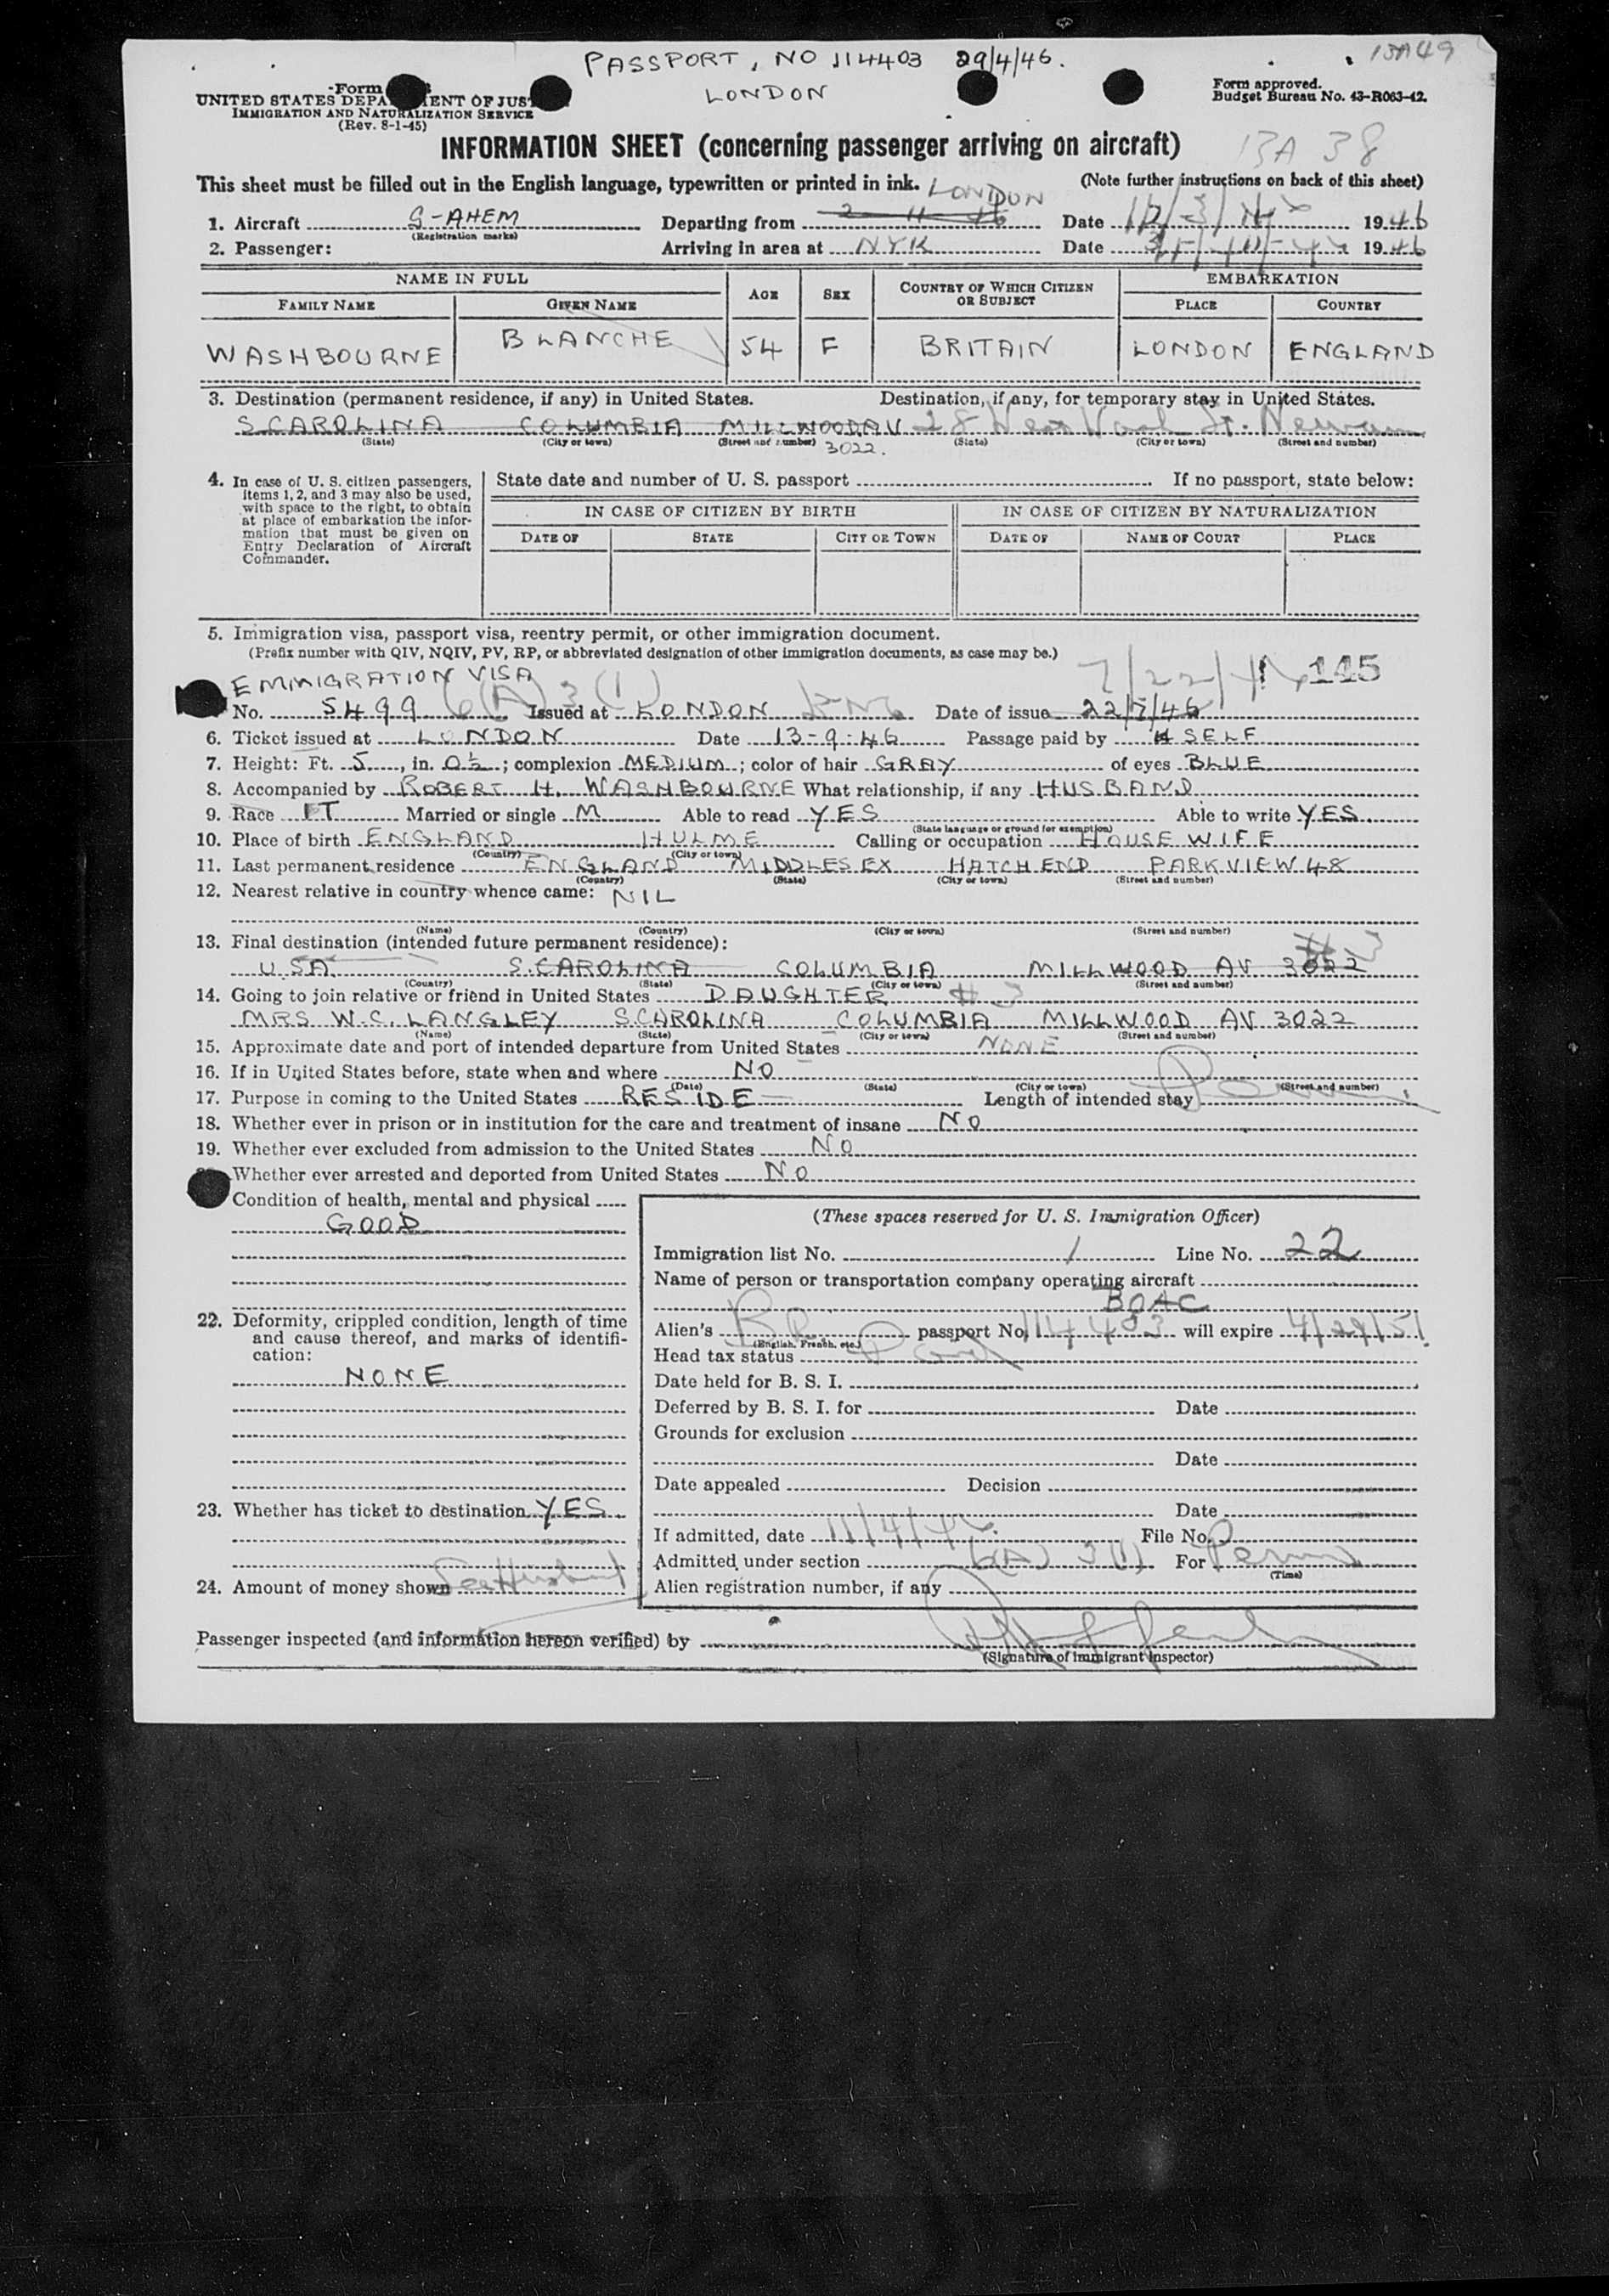 13A49
PASSPORT, NO 114403 29/4/46.
LONDON
Form
UNITED STATES DEPA ENT OF JUS
IMMIGRATION AND NATURALIZATION SERVICE
(Rev. 8-1-45)
Form approved.
Budget Bureau No. 43-R063-42.
INFORMATION SHEET (concerning passenger arriving on aircraft)
13A 38
This sheet must be filled out in the English language, typewritten or printed in ink. LONDON (Note further instructions on back of this sheet)
1. Aircraft G-AHEM Departing from 2 11 46 Date 1946
(Registration marks)
2. Passenger: Arriving in area at NYK Date 1946
NAME IN FULL AGE SEX COUNTRY OF WHICH CITIZEN OR SUBJECT EMBARKATION
FAMILY NAME GIVEN NAME PLACE COUNTRY
WASHBOURNE BLANCHE 54 F BRITAIN LONDON ENGLAND
3. Destination (permanent residence, if any) in United States. Destination, if any, for temporary stay in United States.
S CAROLINA COLUMBIA MILLWOOD AV 28 St.
(State) (City or town) (Street and number) (State) (City or town) (Street and number)
3022.
4. In case of U. S. citizen passengers, items 1, 2, and 3 may also be used, with space to the right, to obtain at place of embarkation the information that must be given on Entry Declaration of Aircraft Commander.
State date and number of U. S. passport If no passport, state below:
IN CASE OF CITIZEN BY BIRTH IN CASE OF CITIZEN BY NATURALIZATION
DATE OF STATE CITY OR TOWN DATE OF NAME OF COURT PLACE
5. Immigration visa, passport visa, reentry permit, or other immigration document.
(Prefix number with QIV, NQIV, PV, RP, or abbreviated designation of other immigration documents, as case may be.)
7/22/46 145
EMMIGRATION VISA
No. 5499 6(A) 3(1) Issued at LONDON Date of issue 22/7/46
6. Ticket issued at LONDON Date 13-9-46 Passage paid by SELF
7. Height: Ft. 5, in. 0½; complexion MEDIUM; color of hair GRAY of eyes BLUE
8. Accompanied by ROBERT H. WASHBOURNE What relationship, if any HUSBAND
9. Race Married or single M Able to read YES Able to write YES
(State language or ground for exemption)
10. Place of birth ENGLAND HULME Calling or occupation HOUSE WIFE
(Country) (City or town)
11. Last permanent residence ENGLAND MIDDLESEX HATCH END PARKVIEW 48
(Country) (State) (City or town) (Street and number)
12. Nearest relative in country whence came: NIL
(Name) (Country) (City or town) (Street and number)
13. Final destination (intended future permanent residence): #3
USA S. CAROLINA COLUMBIA MILLWOOD AV 3022
(Country) (State) (City or town) (Street and number)
14. Going to join relative or friend in United States DAUGHTER #3
MRS W.C. LANGLEY S CAROLINA COLUMBIA MILLWOOD AV 3022
(Name) (State) (City or town) (Street and number)
15. Approximate date and port of intended departure from United States NONE
16. If in United States before, state when and where NO
(Date) (State) (City or town) (Street and number)
17. Purpose in coming to the United States RESIDE Length of intended stay
18. Whether ever in prison or in institution for the care and treatment of insane NO
19. Whether ever excluded from admission to the United States NO
Whether ever arrested and deported from United States NO
Condition of health, mental and physical
GOOD
22. Deformity, crippled condition, length of time and cause thereof, and marks of identification:
NONE
23. Whether has ticket to destination YES
24. Amount of money shown See Husband
(These spaces reserved for U. S. Immigration Officer)
Immigration list No. 1 Line No. 22
Name of person or transportation company operating aircraft
BOAC
Alien's Br passport No. 114403 will expire 4/29/51
(English, French, etc.)
Head tax status Paid
Date held for B. S. I.
Deferred by B. S. I. for Date
Grounds for exclusion
Date
Date appealed Decision
Date
If admitted, date 11/4/46 File No.
Admitted under section 6(A) 3(1) For Perm
(Time)
Alien registration number, if any
Passenger inspected (and information hereon verified) by
(Signature of Immigrant Inspector)